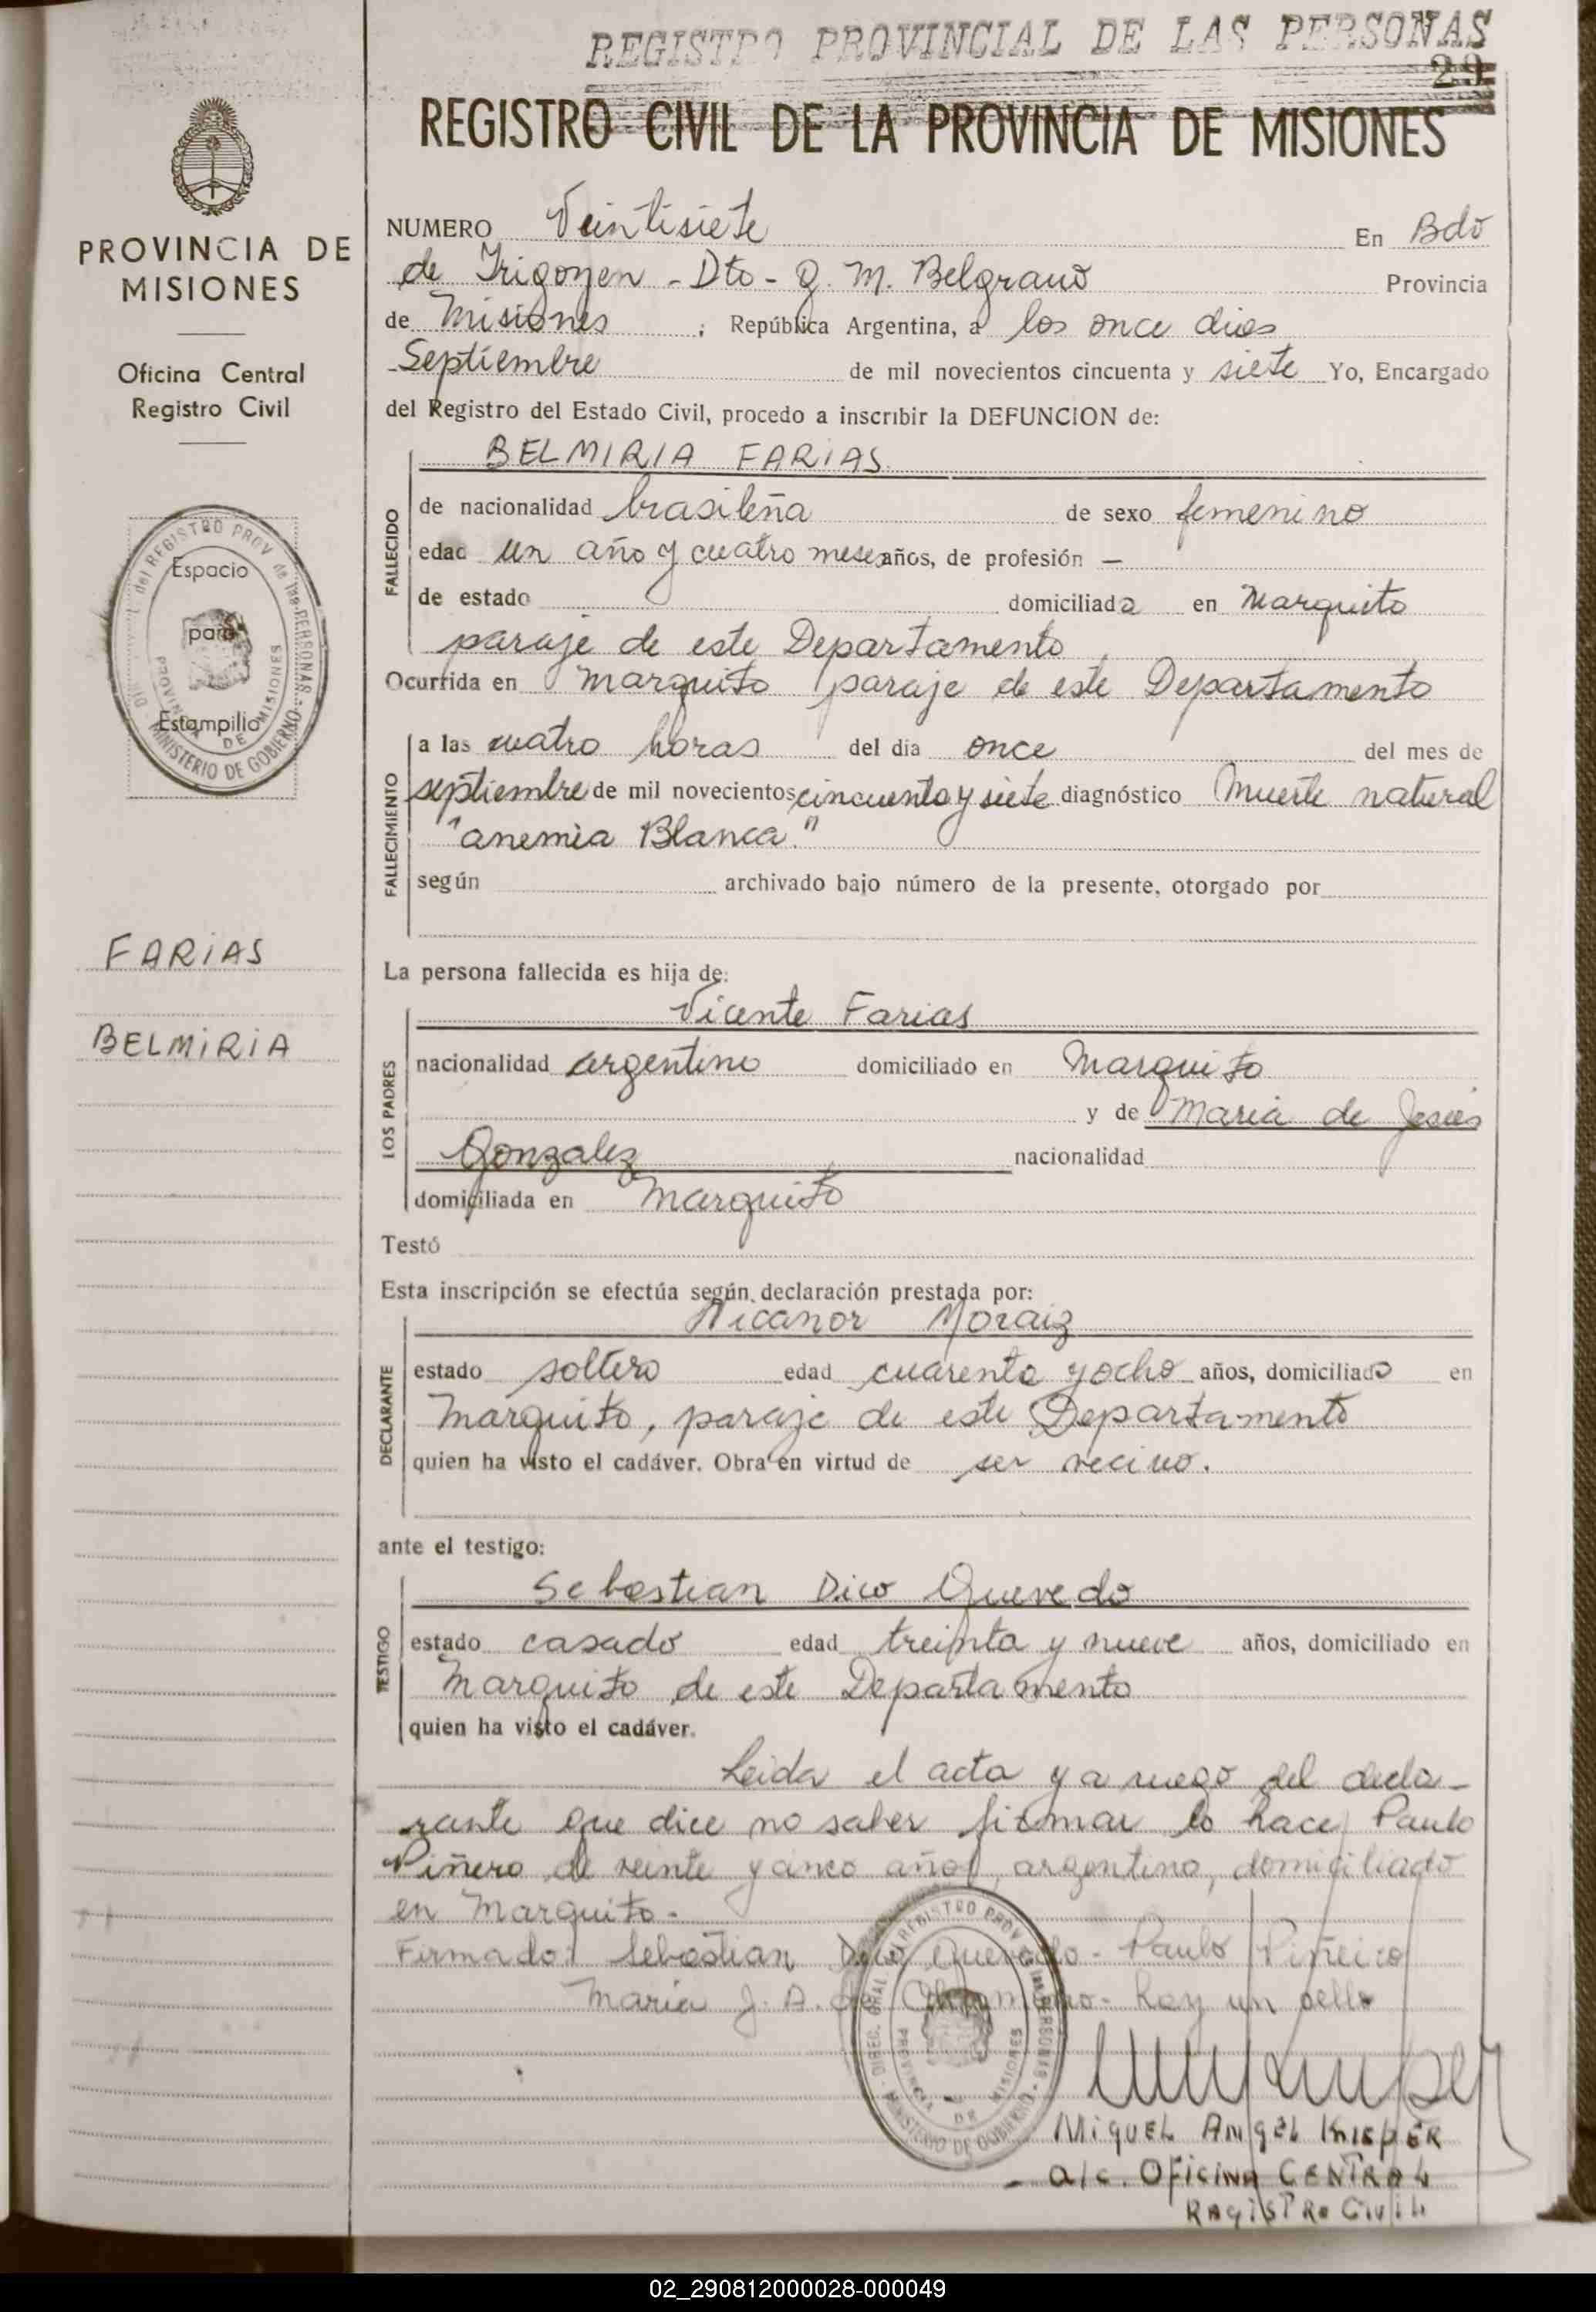 REGISTRO PROVINCIAL DE LAS PERSONAS
29
REGISTRO CIVIL DE LA PROVINCIA DE MISIONES
PROVINCIA DE
MISIONES
Oficina Central
Registro Civil
Espacio
para
Estampilla
FARIAS
BELMIRIA
NUMERO Veintisiete En Bdo
de Irigoyen - Dto - G. M. Belgrano Provincia
de Misiones, República Argentina, a los once dias
Septiembre de mil novecientos cincuenta y siete Yo, Encargado
del Registro del Estado Civil, procedo a inscribir la DEFUNCION de:
FALLECIDO
BELMIRIA FARIAS
de nacionalidad brasileña de sexo femenino
edad un año y cuatro meses años, de profesión —
de estado domiciliada en Marquito
paraje de este Departamento
Ocurrida en Marquito paraje de este Departamento
FALLECIMIENTO
a las cuatro horas del día once del mes de
septiembre de mil novecientos cincuenta y siete diagnóstico Muerte natural
"anemia Blanca."
según archivado bajo número de la presente, otorgado por
La persona fallecida es hija de:
LOS PADRES
Vicente Farias
nacionalidad argentino domiciliado en Marquito
y de Maria de Jesús
Gonzalez nacionalidad
domiciliada en Marquito
Testó
Esta inscripción se efectúa según declaración prestada por:
DECLARANTE
Nicanor Moraiz
estado soltero edad cuarenta y ocho años, domiciliado en
Marquito, paraje de este Departamento
quien ha visto el cadáver. Obra en virtud de ser vecino.
ante el testigo:
TESTIGO
Sebastian Dico Quevedo
estado casado edad treinta y nueve años, domiciliado en
Marquito de este Departamento
quien ha visto el cadáver.
Leida el acta y a ruego del decla-
rante que dice no saber firmar lo hace Paulo
Piñero de veinte y cinco años, argentino, domiciliado
en Marquito.-
Firmado: Sebastian Dico Quevedo - Paulo Piñeiro
Maria J. A. de - Hay un sello
MIGUEL ANGEL KNIEPER
a/c. OFICINA CENTRAL
REGISTRO CIVIL
02_290812000028-000049